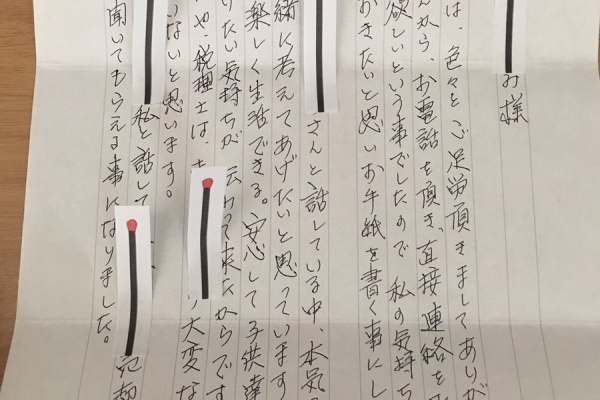 み様
は、色々とご足労頂きましてありが
んから、お電話を頂き、直接連絡を
欲しいという事でしたので 私の気持ち
おきたいと思いお手紙を書く事にし
さんと話している中、本気
緒に考えてあげたいと思っています
楽しく生活できる。安心して子供達
りたい気持ちが 伝わって来たからです
や、税理士は、
大変な
いないと思います。
私と話して
聞いてもらえる事になりました。